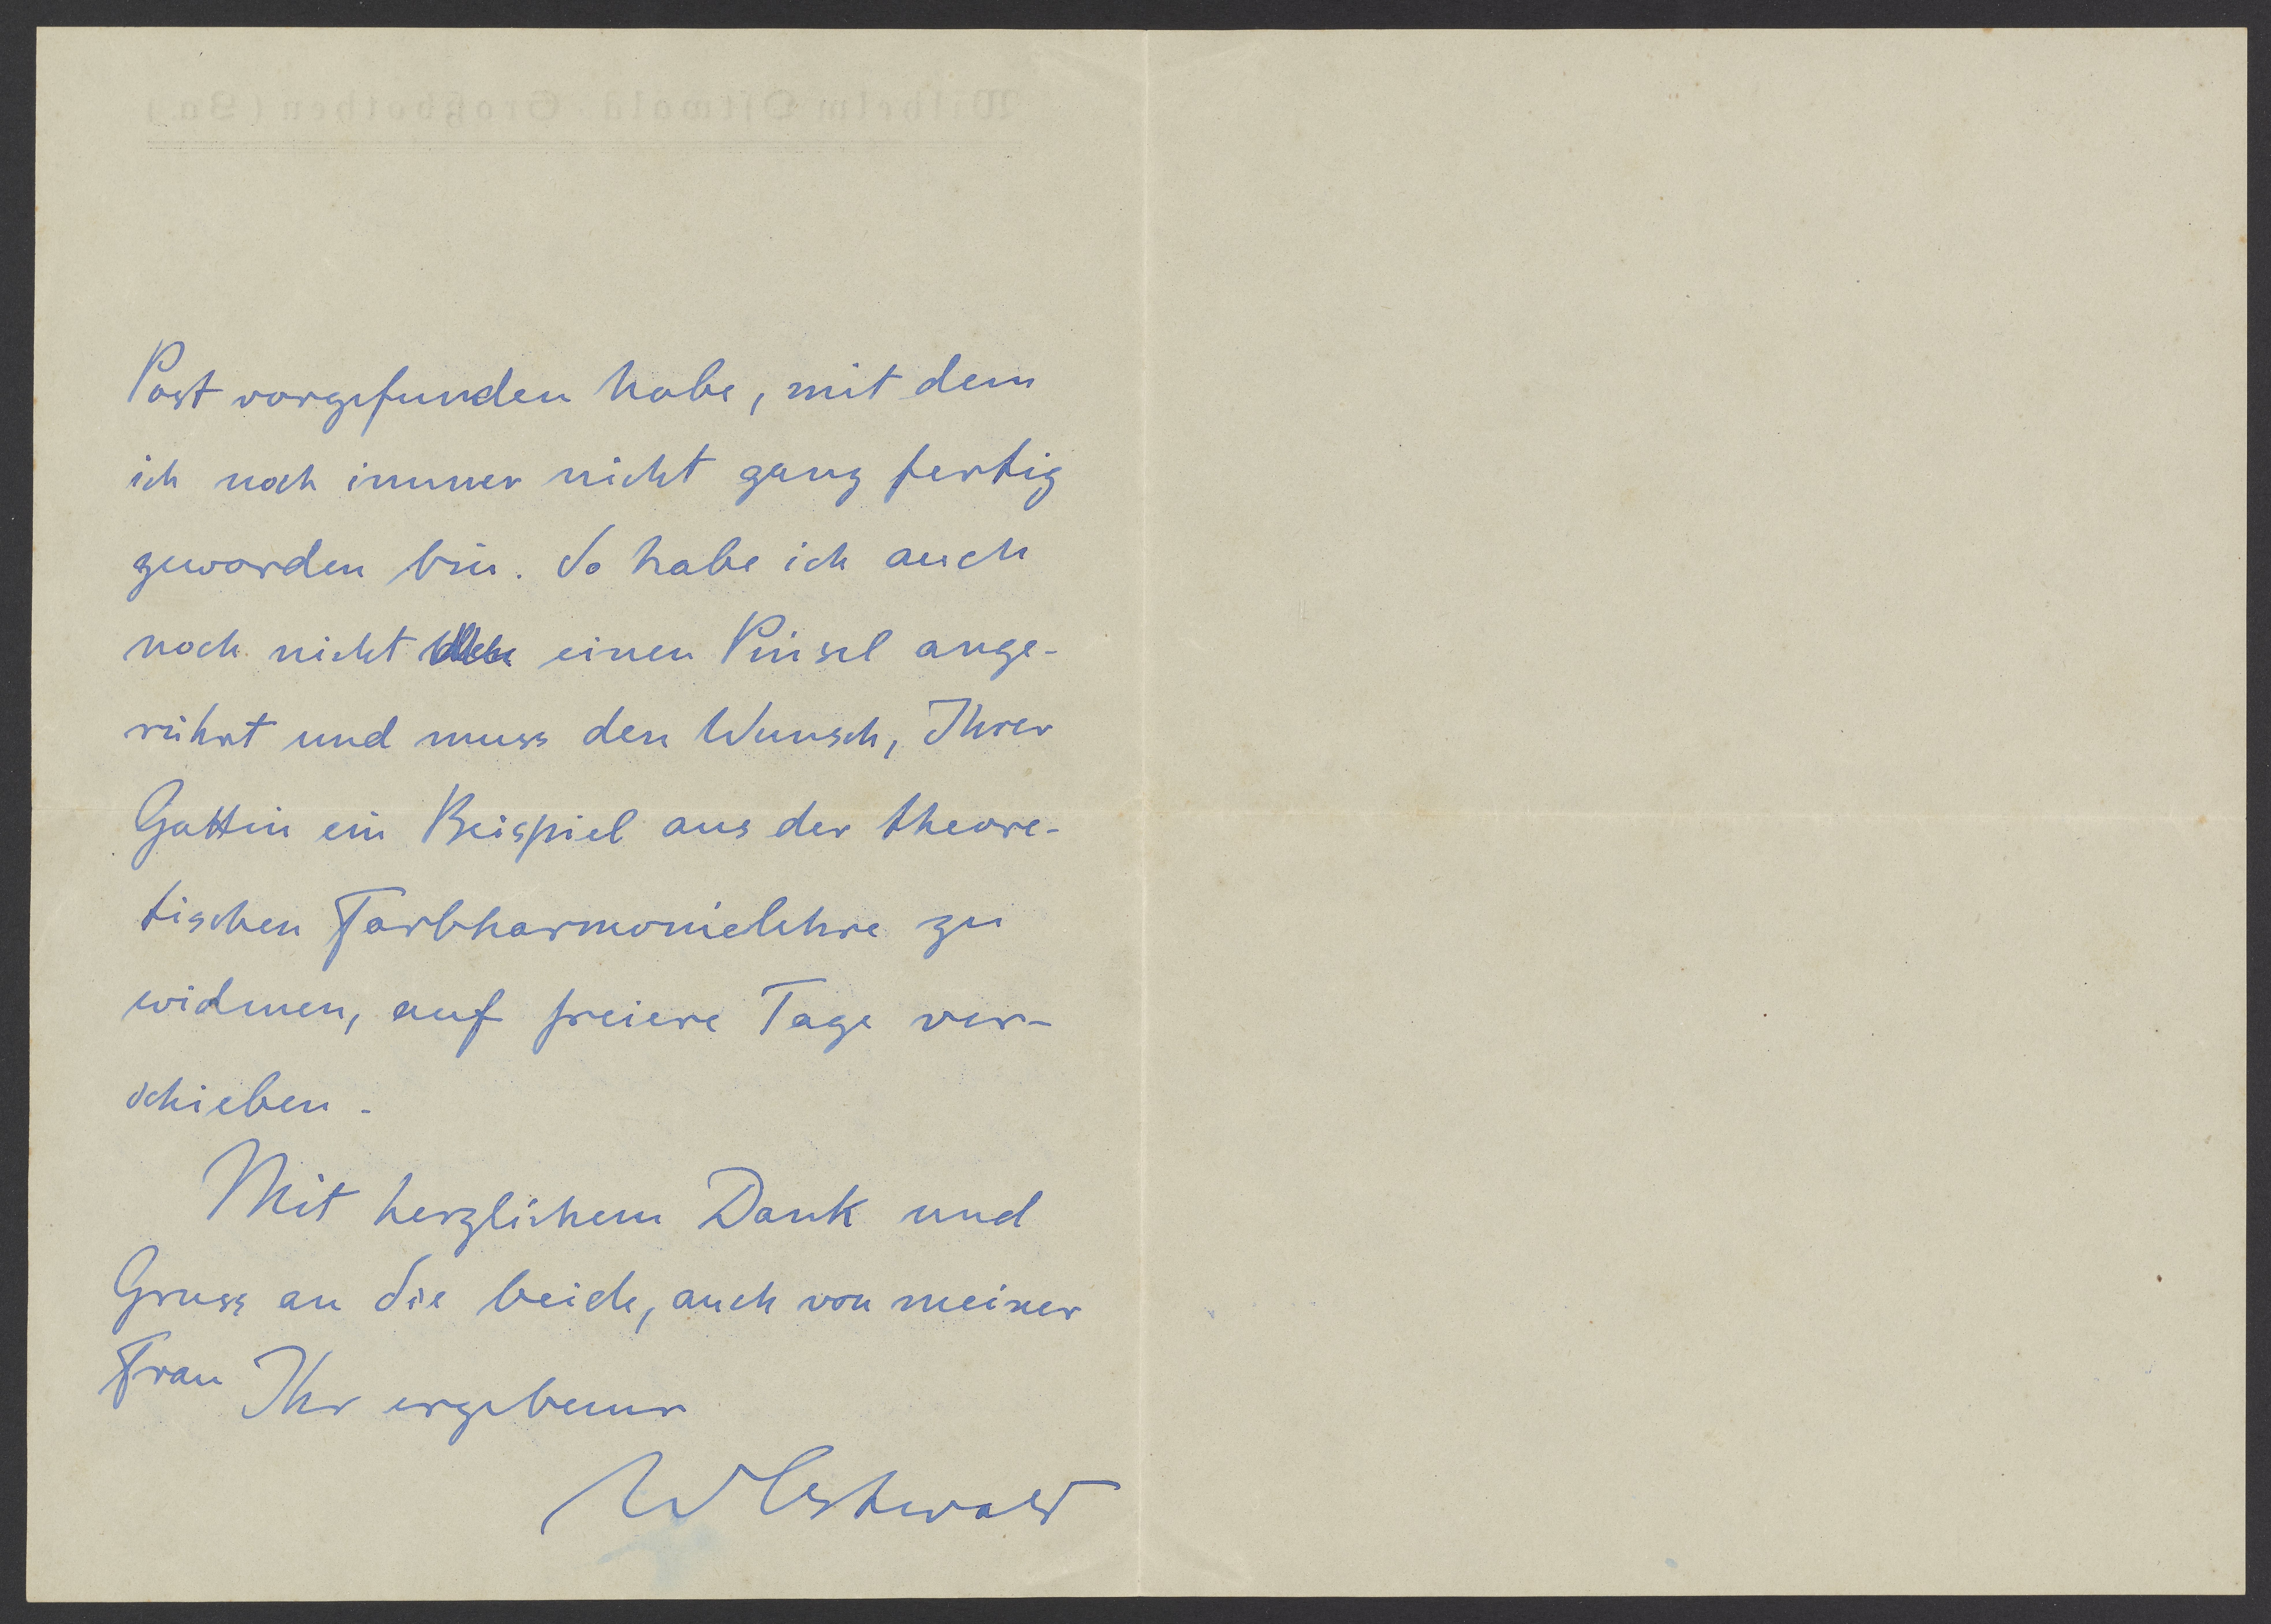 Wilhelm Ostwald Großbothen (Sa.)
Post vorgefunden habe, mit dem
ich noch immer nicht ganz fertig
geworden bin. So habe ich auch
noch nicht einen Pinsel ange-
rührt und muss den Wunsch, Ihrer
Gattin ein Beispiel aus der theore-
tischen Farbharmonielehre zu
widmen, auf freiere Tage ver-
schieben.
Mit herzlichem Dank und
Gruss an Sie beide, auch von meiner
Frau
Ihr ergebener
WOstwald